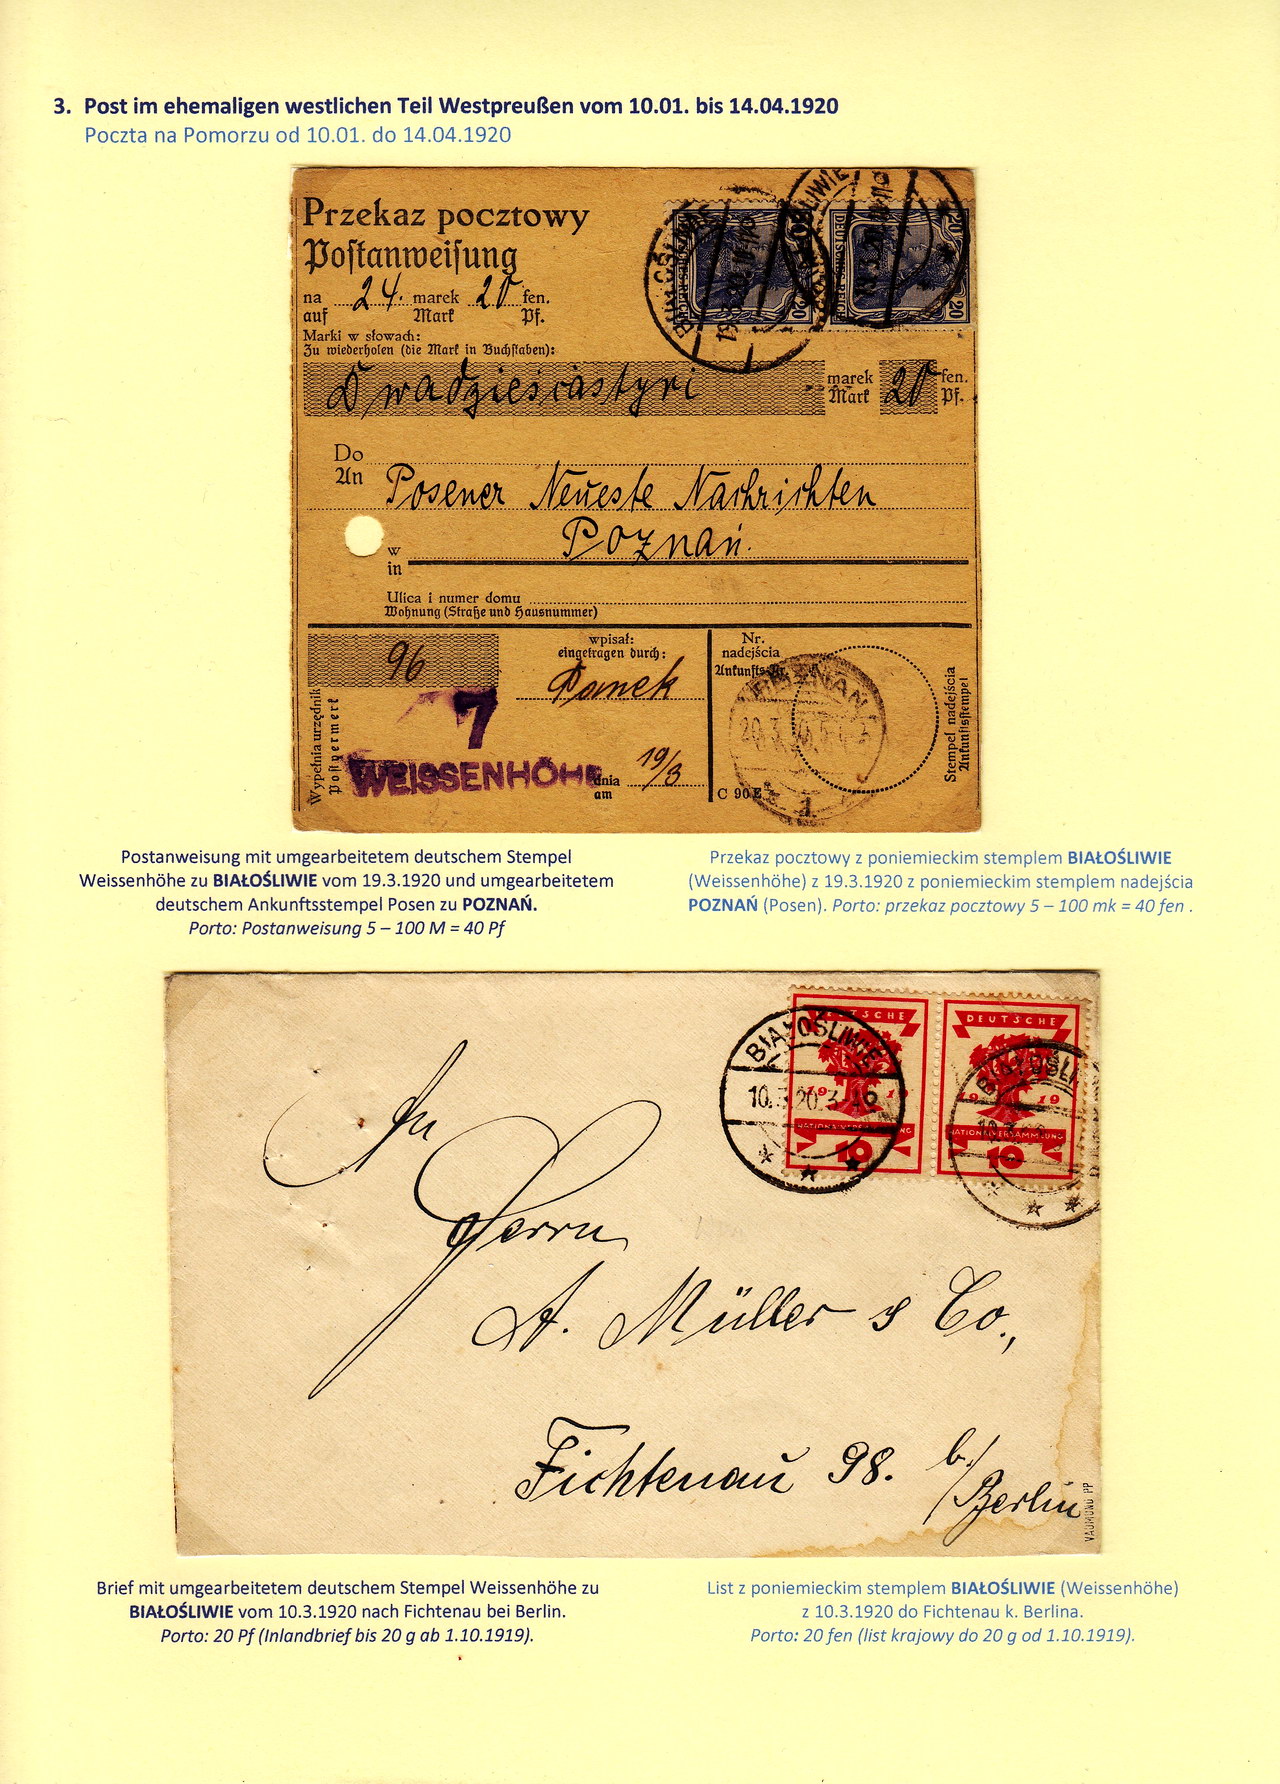 3. Post im ehemaligen westlichen Teil Westpreußen vom 10.01. bis 14.04.1920
Poczta na Pomorzu od 10.01. do 14.04.1920
Przekaz pocztowy
Postanweisung
na 24. marek 20 fen.
auf Mark Pf.
Marki w słowach:
Zu wiederholen (die Mark in Buchstaben):
Dwadzieściastyri marek 20 fen.
Mark Pf.
20 DEUTSCHES REICH 20
20 DEUTSCHES REICH 20
BIAŁOŚLIWIE
BIAŁOŚLIWIE
Do
An Posener Neueste Nachrichten
w Poznań.
in
Ulica i numer domu
Wohnung (Straße und Hausnummer)
96
wpisał:
eingetragen durch:
Panek
Nr.
nadejścia
Ankunfts-Nr.
Wypełnia urzędnik
Postvermerk
7
WEISSENHÖHE
dnia 19/3
am
C 90
POZNAŃ
1
Stempel nadejścia
Ankunftsstempel
Postanweisung mit umgearbeitetem deutschem Stempel
Weissenhöhe zu BIAŁOŚLIWIE vom 19.3.1920 und umgearbeitetem
deutschem Ankunftsstempel Posen zu POZNAŃ.
Porto: Postanweisung 5 – 100 M = 40 Pf
Przekaz pocztowy z poniemieckim stemplem BIAŁOŚLIWIE
(Weissenhöhe) z 19.3.1920 z poniemieckim stemplem nadejścia
POZNAŃ (Posen). Porto: przekaz pocztowy 5 – 100 mk = 40 fen .
DEUTSCHE
1919
NATIONALVERSAMMLUNG
10
DEUTSCHE
1919
NATIONALVERSAMMLUNG
10
BIAŁOŚLIWIE
10.3.20.3-4
BIAŁOŚLI
An
Herrn
A. Müller & Co.,
Fichtenau 98. b/
Berlin
Brief mit umgearbeitetem deutschem Stempel Weissenhöhe zu
BIAŁOŚLIWIE vom 10.3.1920 nach Fichtenau bei Berlin.
Porto: 20 Pf (Inlandbrief bis 20 g ab 1.10.1919).
List z poniemieckim stemplem BIAŁOŚLIWIE (Weissenhöhe)
z 10.3.1920 do Fichtenau k. Berlina.
Porto: 20 fen (list krajowy do 20 g od 1.10.1919).